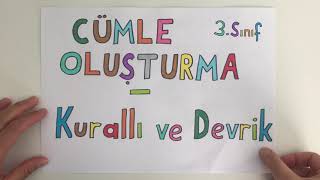 CÜMLE 3.Sınıf
OLUŞTURMA
Kurallı ve Devrik